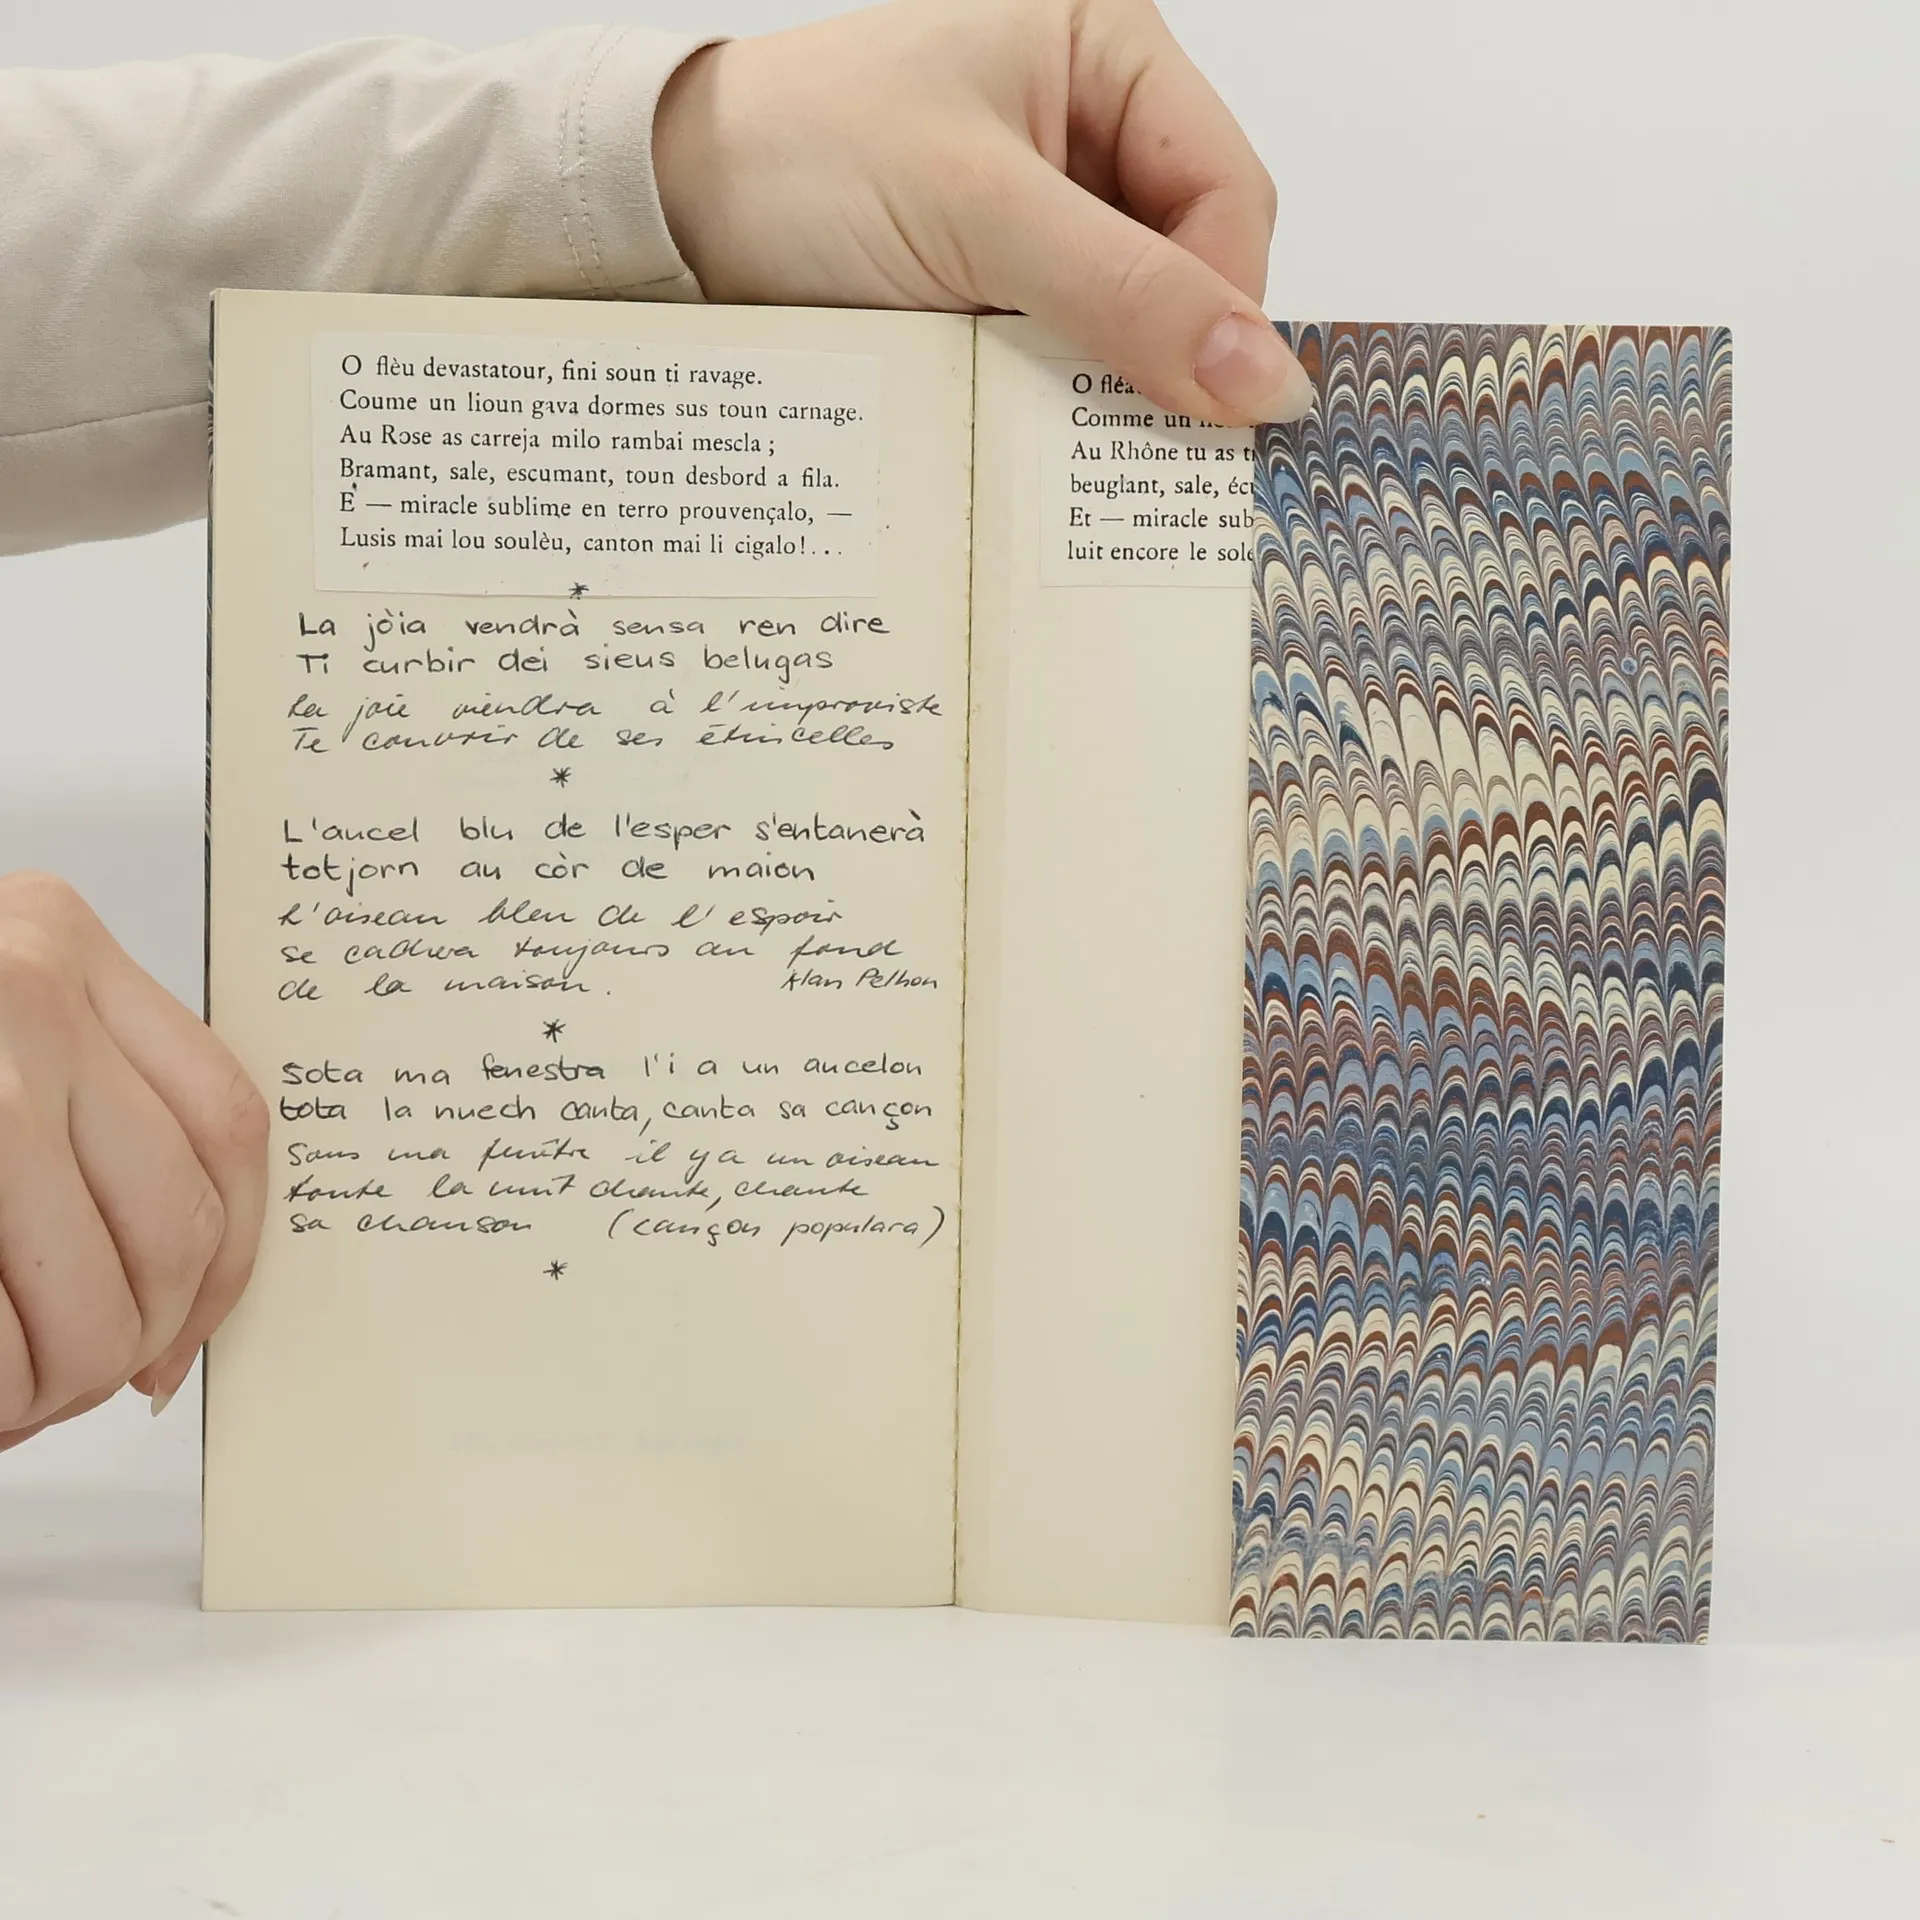 O flèu devastatour, fini soun ti ravage.
Coume un lioun gava dormes sus toun carnage.
Au Rose as carreja milo rambai mescla ;
Bramant, sale, escumant, toun desbord a fila.
E — miracle sublime en terro prouvençalo, —
Lusis mai lou soulèu, canton mai li cigalo!...
*
La jòia vendrà sensa ren dire
Ti curbir dei sieus belugas
La joie viendra à l'improviste
Te couvrir de ses étincelles
*
L'aucel blu de l'esper s'entanerà
totjorn au còr de maion
L'oiseau bleu de l'espoir
se cachera toujours au fond
de la maison.
Alan Pelhon
*
Sota ma fenestra l'i a un aucelon
tota la nuech canta, canta sa cançon
Sous ma fenêtre il y a un oiseau
toute la nuit chante, chante
sa chanson (cançon populara)
*
O fléa
Comme un
Au Rhône tu as
beuglant, sale,
Et — miracle sub
luit encore le sole